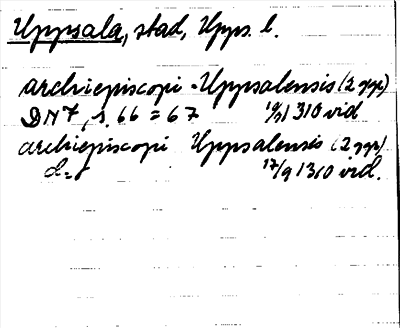 Uppsala, stad, Upps. l.
archiepiscopi Uppsalensis (2 ggr)
DN 7, s. 66 = 67 1310 vid
archiepiscopi Uppsalensis (2 ggr)
d:o 17/9 1310 vid.